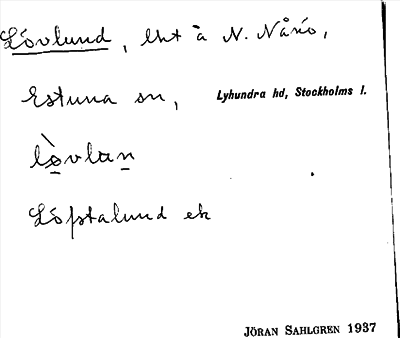 Lövlund, lht å N. Nånö,
Estuna sn, Lyhundra hd, Stockholms l.
lò̤vlan̲
Löfstalund ek
JÖRAN SAHLGREN 1937